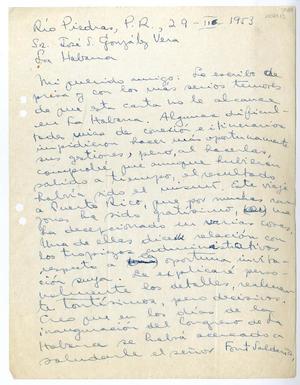 Río Piedras, P.R., 29-III-1953
Sr. José S. González Vera
La Habana
Mi querido amigo: Le escribo de
prisa y con los más serios temores
de que esta carta no le alcance
en La Habana. Algunas dificul-
tades mías de conexión e itinerarios
impidieron hacer más oportunamente
sus gestiones, pero, al hacerlas,
comprendí que aunque hubieran
salido a tiempo, el resultado
habría sido el mismo. Este viaje
a Puerto Rico, que por muchas ra-
zones ha sido gratísimo, me
ha decepcionado en varias cosas.
Una de ellas dice relación con
los tropiezos administrativos
respecto a la oportuna invita-
ción suya. Le explicaré perso-
nalmente los detalles, realmen-
te tontísimos, pero decisivos.
Creo que en los días de la
inauguración del Congreso de la
Habana se habrá acercado a
saludarle el señor Font Saldaña,